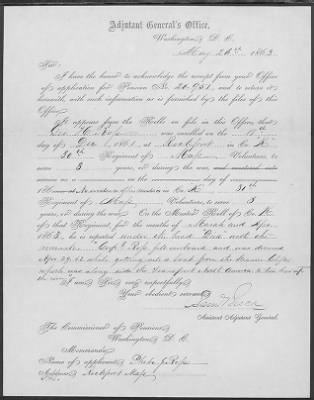 Adjutant General's Office,
Washington, D. C.
May 26th, 1863.
Sir:
I have the honor to acknowledge the receipt from your Office
of application for Pension No. 20,951, and to return it
herewith, with such information as is furnished by the files of this
Office.
It appears from the Rolls on file in this Office, that
Geo. C. Ross was enrolled on the
day of Dec., 1861, at Rockport, in Co. K,
30th Regiment of Mass Volunteers, to
serve 3 years, or during the war, and mustered into
service as a on the day of
186 in Co. K, 30th
Regiment of Mass Volunteers, to serve 3
years, or during the war. On the Muster Roll of Co. K
of that Regiment, for the months of March and Apr.
1862, he is reported under the head and
remarks: "Corpl. Ross fell overboard and was drowned
Apr. 29, 62 while getting into a boat from the Steamer
which was along side the Transport North America to
I am, Sir, very respectfully,
Your obedient servant,
Assistant Adjutant General.
The Commissioner of Pensions
Washington, D. C.
Memoranda:
Name of applicant, Phebe J. Ross
Address, Rockport Mass